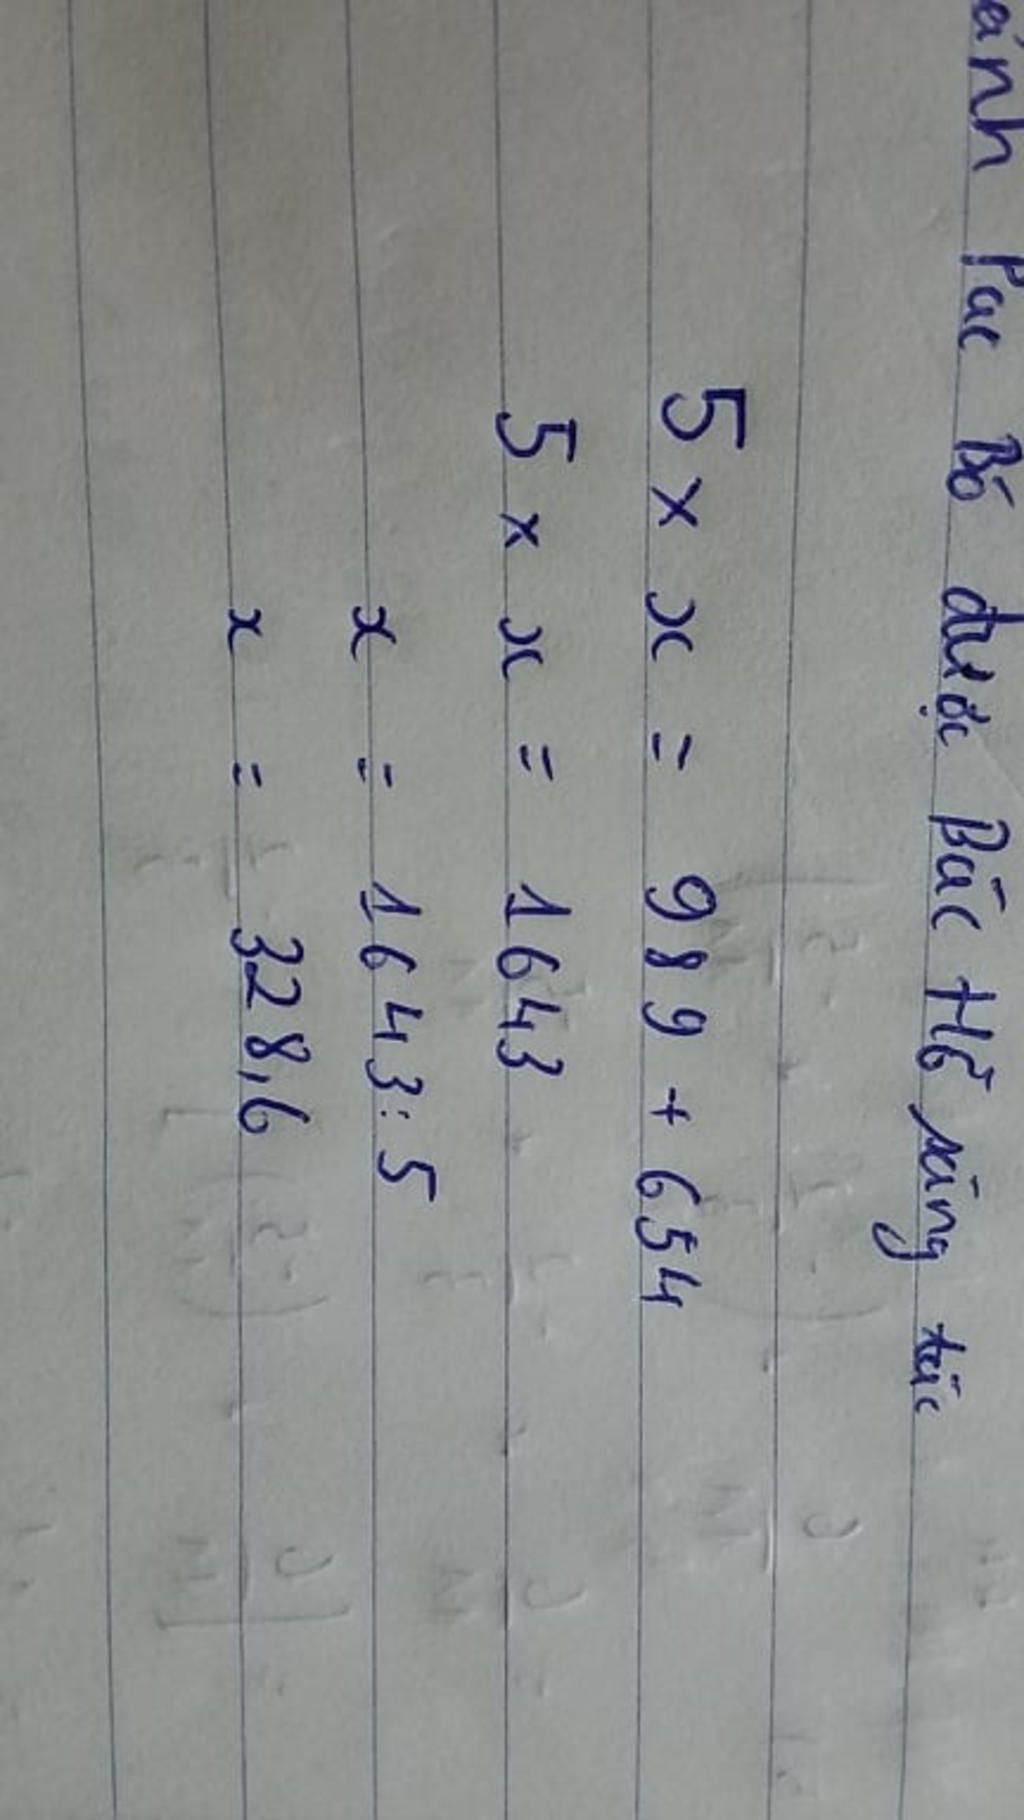 ảnh Pác Bó được Bác Hồ sáng tác
5 × x = 989 + 654
5 × x = 1643
x = 1643 : 5
x = 328,6